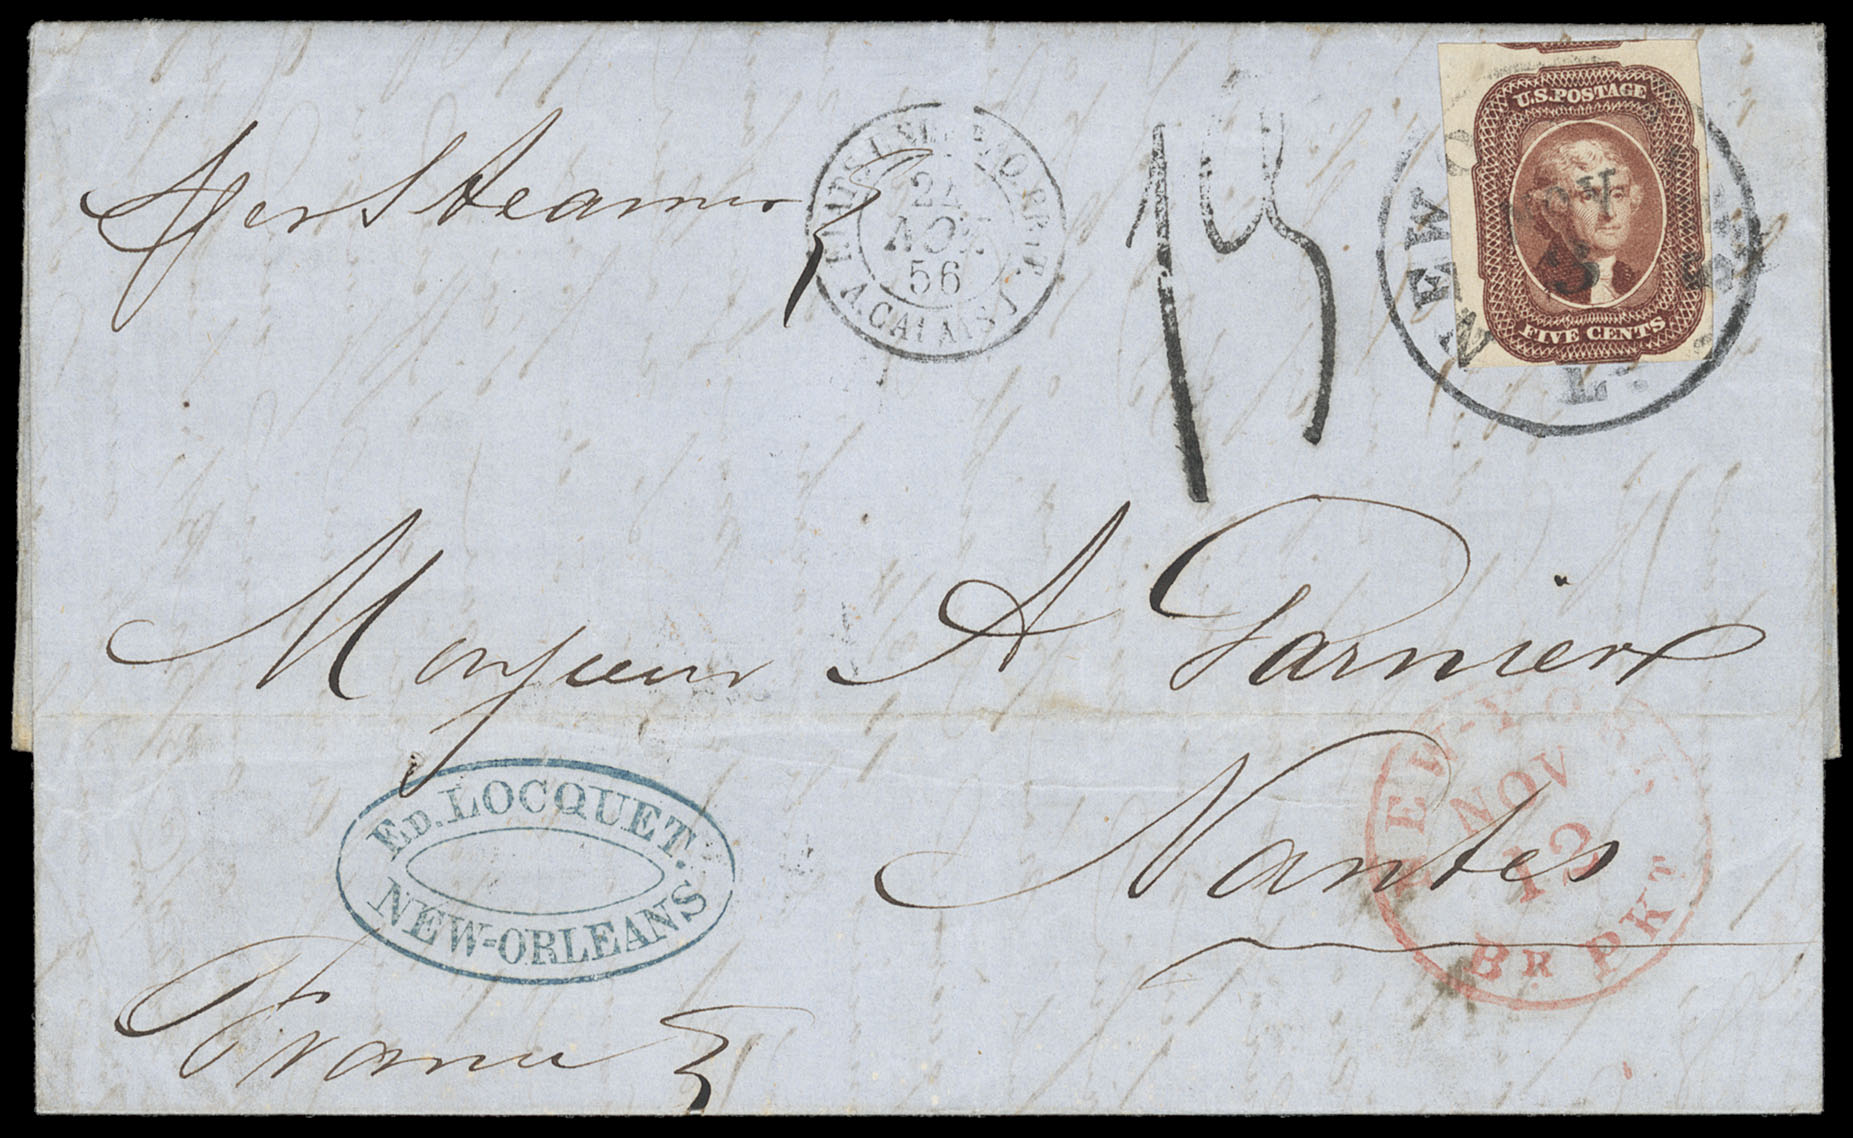 Per Steamer
ETATS-UNIS
24
NOV.
56
A. CALAIS
13
U.S. POSTAGE
FIVE CENTS
NEW O
NOV
5
La.
Monsieur A Garnier
Nantes
ED. LOCQUET.
NEW-ORLEANS
NEW-YO
NOV
12
BR PKT
France